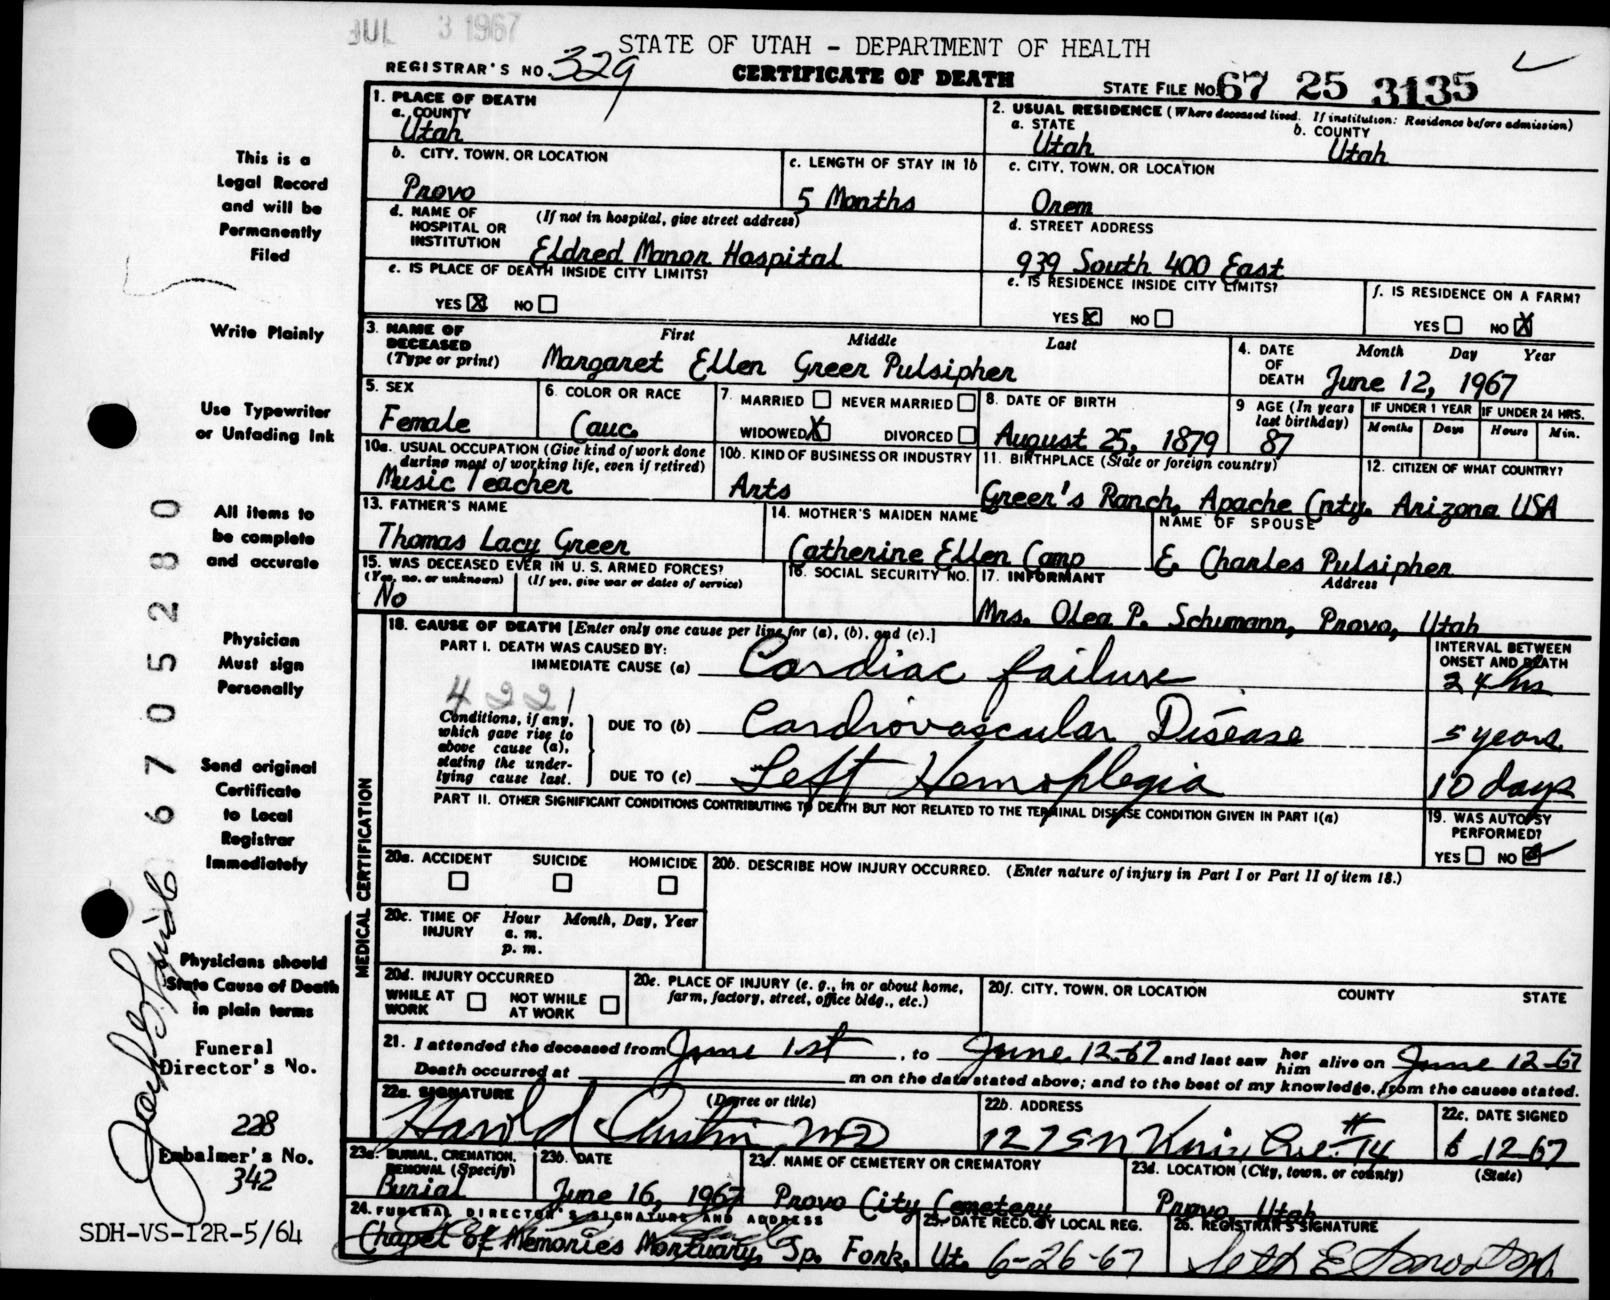 JUL 3 1967
STATE OF UTAH - DEPARTMENT OF HEALTH
REGISTRAR'S NO. 329
CERTIFICATE OF DEATH
STATE FILE NO. 67 25 3135
1. PLACE OF DEATH
a. COUNTY
Utah
2. USUAL RESIDENCE (Where deceased lived. If institution: Residence before admission)
a. STATE
Utah
b. COUNTY
Utah
b. CITY, TOWN, OR LOCATION
Provo
c. LENGTH OF STAY IN 1b
5 Months
c. CITY, TOWN, OR LOCATION
Orem
d. NAME OF HOSPITAL OR INSTITUTION
(If not in hospital, give street address)
Eldred Manor Hospital
d. STREET ADDRESS
939 South 400 East
e. IS PLACE OF DEATH INSIDE CITY LIMITS?
YES X NO
e. IS RESIDENCE INSIDE CITY LIMITS?
YES X NO
f. IS RESIDENCE ON A FARM?
YES NO X
3. NAME OF DECEASED (Type or print)
First Middle Last
Margaret Ellen Greer Pulsipher
4. DATE OF DEATH
Month Day Year
June 12, 1967
5. SEX
Female
6. COLOR OR RACE
Cauc.
7. MARRIED NEVER MARRIED
WIDOWED X DIVORCED
8. DATE OF BIRTH
August 25, 1879
9 AGE (In years last birthday)
87
IF UNDER 1 YEAR
Months Days
IF UNDER 24 HRS.
Hours Min.
10a. USUAL OCCUPATION (Give kind of work done during most of working life, even if retired)
Music Teacher
10b. KIND OF BUSINESS OR INDUSTRY
Arts
11. BIRTHPLACE (State or foreign country)
Greer's Ranch, Apache Cnty. Arizona
12. CITIZEN OF WHAT COUNTRY?
USA
13. FATHER'S NAME
Thomas Lacy Greer
14. MOTHER'S MAIDEN NAME
Catherine Ellen Camp
NAME OF SPOUSE
E. Charles Pulsipher
15. WAS DECEASED EVER IN U.S. ARMED FORCES?
(Yes, no. or unknown) (If yes, give war or dates of service)
No
16. SOCIAL SECURITY NO.
17. INFORMANT Address
Mrs. Olea P. Schumann, Provo, Utah
MEDICAL CERTIFICATION
18. CAUSE OF DEATH [Enter only one cause per line for (a), (b), and (c).]
PART I. DEATH WAS CAUSED BY:
IMMEDIATE CAUSE (a) Cardiac failure
INTERVAL BETWEEN ONSET AND DEATH
24 hrs
4221
Conditions, if any, which gave rise to above cause (a), stating the underlying cause last.
DUE TO (b) Cardiovascular Disease
5 years
DUE TO (c) Left Hemoplegia
10 days
PART II. OTHER SIGNIFICANT CONDITIONS CONTRIBUTING TO DEATH BUT NOT RELATED TO THE TERMINAL DISEASE CONDITION GIVEN IN PART I(a)
19. WAS AUTOPSY PERFORMED?
YES NO
20a. ACCIDENT SUICIDE HOMICIDE
20b. DESCRIBE HOW INJURY OCCURRED. (Enter nature of injury in Part I or Part II of item 18.)
20c. TIME OF INJURY
Hour Month, Day, Year
a. m.
p. m.
20d. INJURY OCCURRED
WHILE AT WORK
NOT WHILE AT WORK
20e. PLACE OF INJURY (e. g., in or about home, farm, factory, street, office bldg., etc.)
20f. CITY, TOWN, OR LOCATION COUNTY STATE
21. I attended the deceased from June 1st, to June 12-67 and last saw her him alive on June 12-67
Death occurred at m on the date stated above; and to the best of my knowledge, from the causes stated.
22a. SIGNATURE (Degree or title)
Harold Austin MD
22b. ADDRESS
1275 N Univ. Ave. #14
22c. DATE SIGNED
6 12-67
23a. BURIAL, CREMATION, REMOVAL (Specify)
Burial
23b. DATE
June 16, 1967
23c. NAME OF CEMETERY OR CREMATORY
Provo City Cemetery
23d. LOCATION (City, town, or county) (State)
Provo, Utah
24. FUNERAL DIRECTOR'S SIGNATURE AND ADDRESS
Chapel of Memories Mortuary, Sp. Fork, Ut.
25. DATE RECD. BY LOCAL REG.
6-26-67
26. REGISTRAR'S SIGNATURE
This is a
Legal Record
and will be
Permanently
Filed
Write Plainly
Use Typewriter
or Unfading Ink
All items to
be complete
and accurate
Physician
Must sign
Personally
Send original
Certificate
to Local
Registrar
Immediately
Physicians should
State Cause of Death
in plain terms
Funeral
Director's No.
228
Embalmer's No.
342
67 05280
SDH-VS-12R-5/64